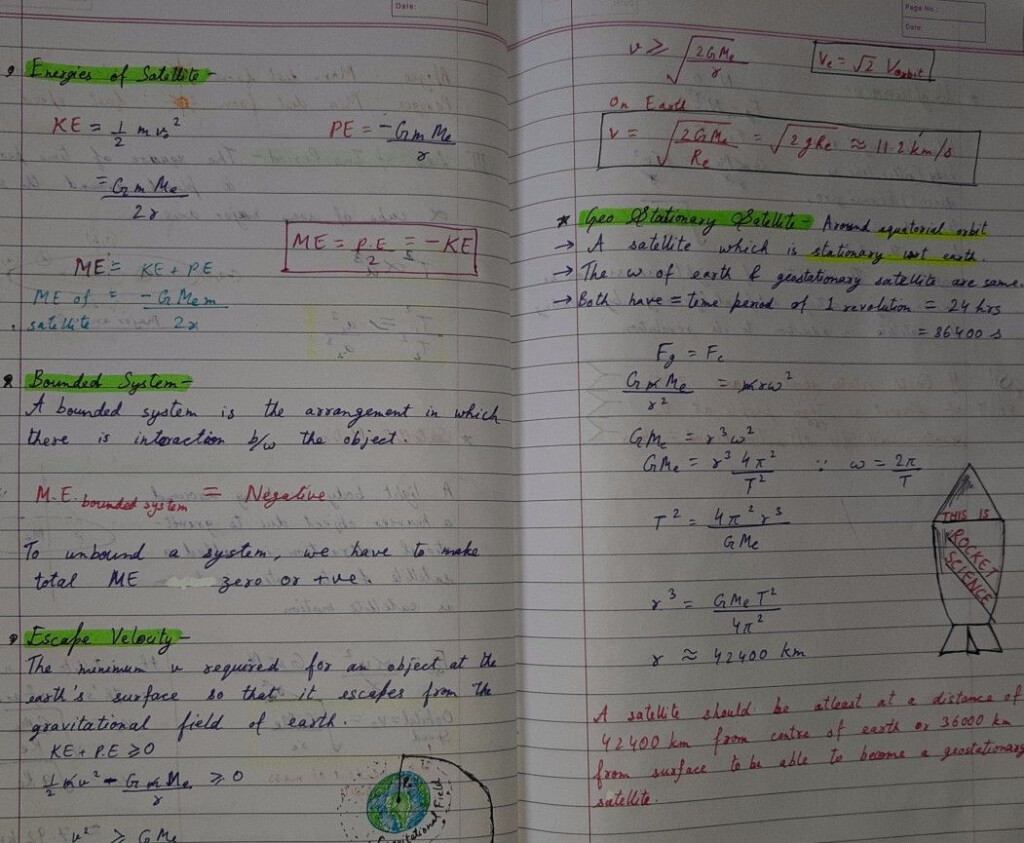 Date:
Energies of Satellite-
KE = 1/2 m v₀²
PE = -G m Me / r
= G m Me / 2r
ME = P.E / 2 = -KE
ME = KE + PE
ME of satellite = -G Me m / 2r
Bounded System-
A bounded system is the arrangement in which
there is interaction b/w the object.
M.E. bounded system = Negative
To unbound a system, we have to make
total ME zero or +ve.
Escape Velocity-
The minimum v required for an object at the
earth's surface so that it escapes from the
gravitational field of earth.
KE + P.E ≥ 0
1/2 m v² - G m Me / r ≥ 0
v² ≥ G Me
Gravitational Field
Page No.:
Date:
v ≥ √(2GMe / r)
Ve = √2 Vorbit
On Earth
v = √(2GMe / Re) = √(2gRe) ≈ 11.2 km/s
* Geo Stationary Satellite- Around equatorial orbit
→ A satellite which is stationary wrt earth.
→ The ω of earth & geostationary satellite are same.
→ Both have = time period of 1 revolution = 24 hrs
= 86400 s
Fg = Fc
G m Me / r² = m r ω²
GMe = r³ω²
GMe = r³ 4π² / T² ∵ ω = 2π / T
T² = 4π² r³ / GMe
r³ = GMe T² / 4π²
r ≈ 42400 km
THIS IS
ROCKET
SCIENCE
A satellite should be atleast at a distance of
42400 km from centre of earth or 36000 km
from surface to be able to become a geostationary
satellite.